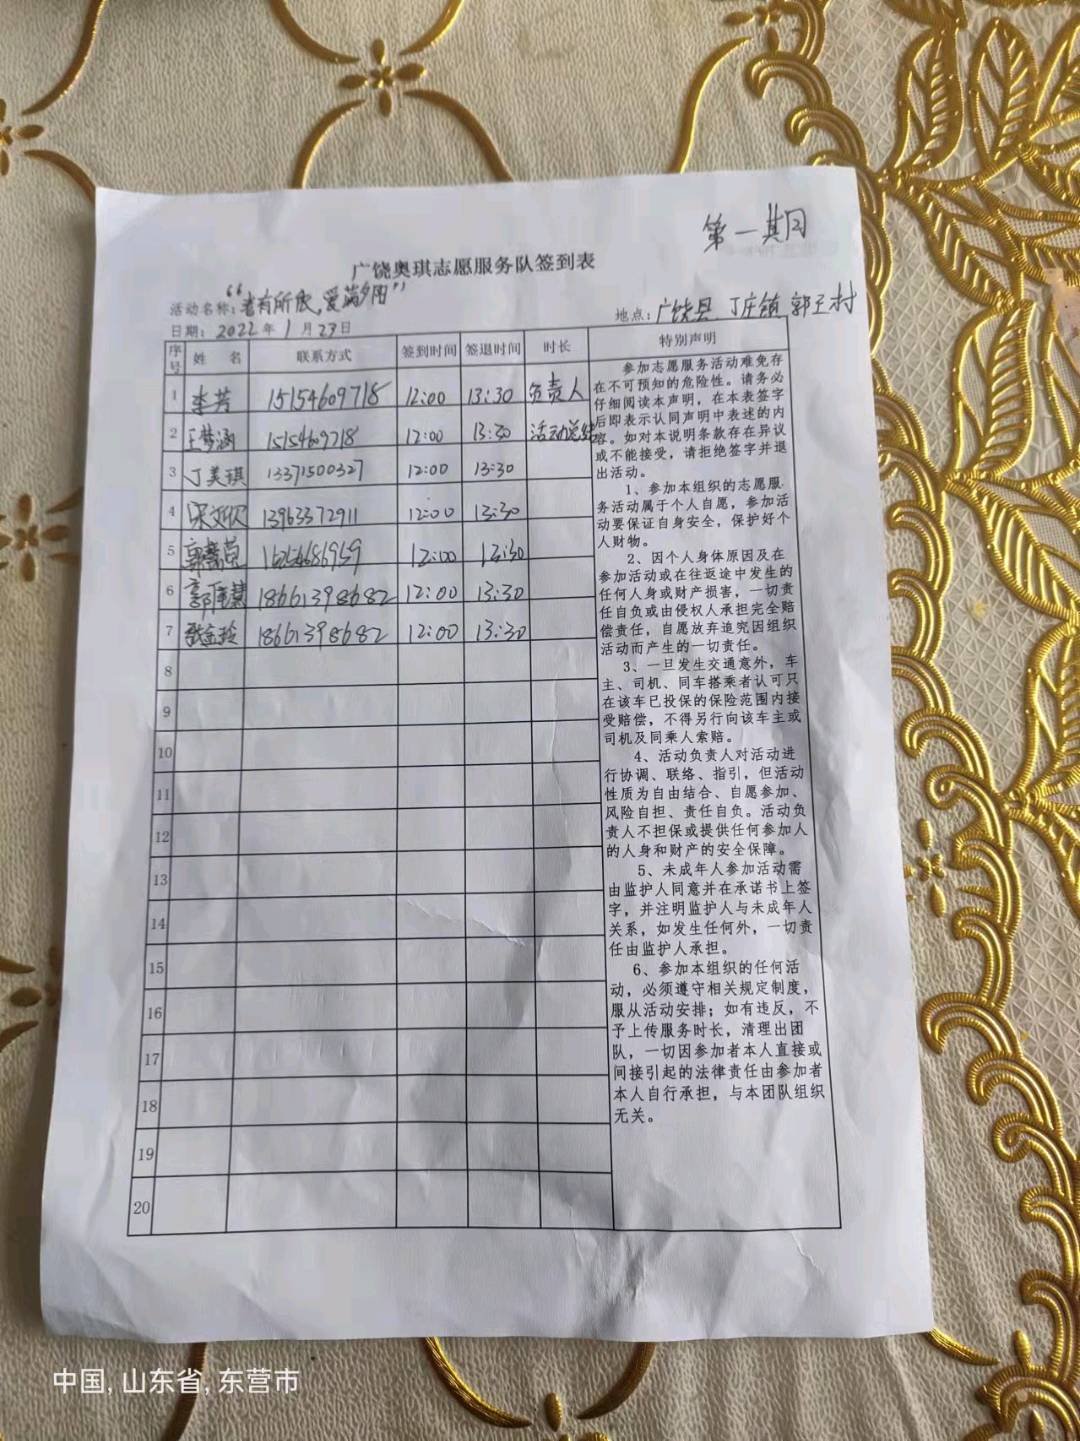 第一期
广饶奥琪志愿服务队签到表
活动名称：“老有所依，爱满夕阳”
地点：广饶县 丁庄镇 郭王村
日期：2022年1月23日
序号 姓 名 联系方式 签到时间 签退时间 时长 特别声明
1 李芳 15154609718 12:00 13:30 负责人
2 王梦涵 15154609718 12:00 13:30 活动总结
3 丁美琪 13371500327 12:00 13:30
4 宋文欣 13963372911 12:00 13:30
5 12:00 13:30
6 18661398682 12:00 13:30
7 张金玲 18661398682 12:00 13:30
8
9
10
11
12
13
14
15
16
17
18
19
20
参加志愿服务活动难免存
在不可预知的危险性。请务必
仔细阅读本声明，在本表签字
后即表示认同声明中表述的内
容。如对本说明条款存在异议
或不能接受，请拒绝签字并退
出活动。
1、参加本组织的志愿服
务活动属于个人自愿，参加活
动要保证自身安全，保护好个
人财物。
2、因个人身体原因及在
参加活动或在往返途中发生的
任何人身或财产损害，一切责
任自负或由侵权人承担完全赔
偿责任，自愿放弃追究因组织
活动而产生的一切责任。
3、一旦发生交通意外，车
主、司机、同车搭乘者认可只
在该车已投保的保险范围内接
受赔偿，不得另行向该车主或
司机及同乘人索赔。
4、活动负责人对活动进
行协调、联络、指引，但活动
性质为自由结合、自愿参加、
风险自担、责任自负。活动负
责人不担保或提供任何参加人
的人身和财产的安全保障。
5、未成年人参加活动需
由监护人同意并在承诺书上签
字，并注明监护人与未成年人
关系，如发生任何外，一切责
任由监护人承担。
6、参加本组织的任何活
动，必须遵守相关规定制度，
服从活动安排；如有违反，不
予上传服务时长，清理出团
队，一切因参加者本人直接或
间接引起的法律责任由参加者
本人自行承担，与本团队组织
无关。
中国, 山东省, 东营市